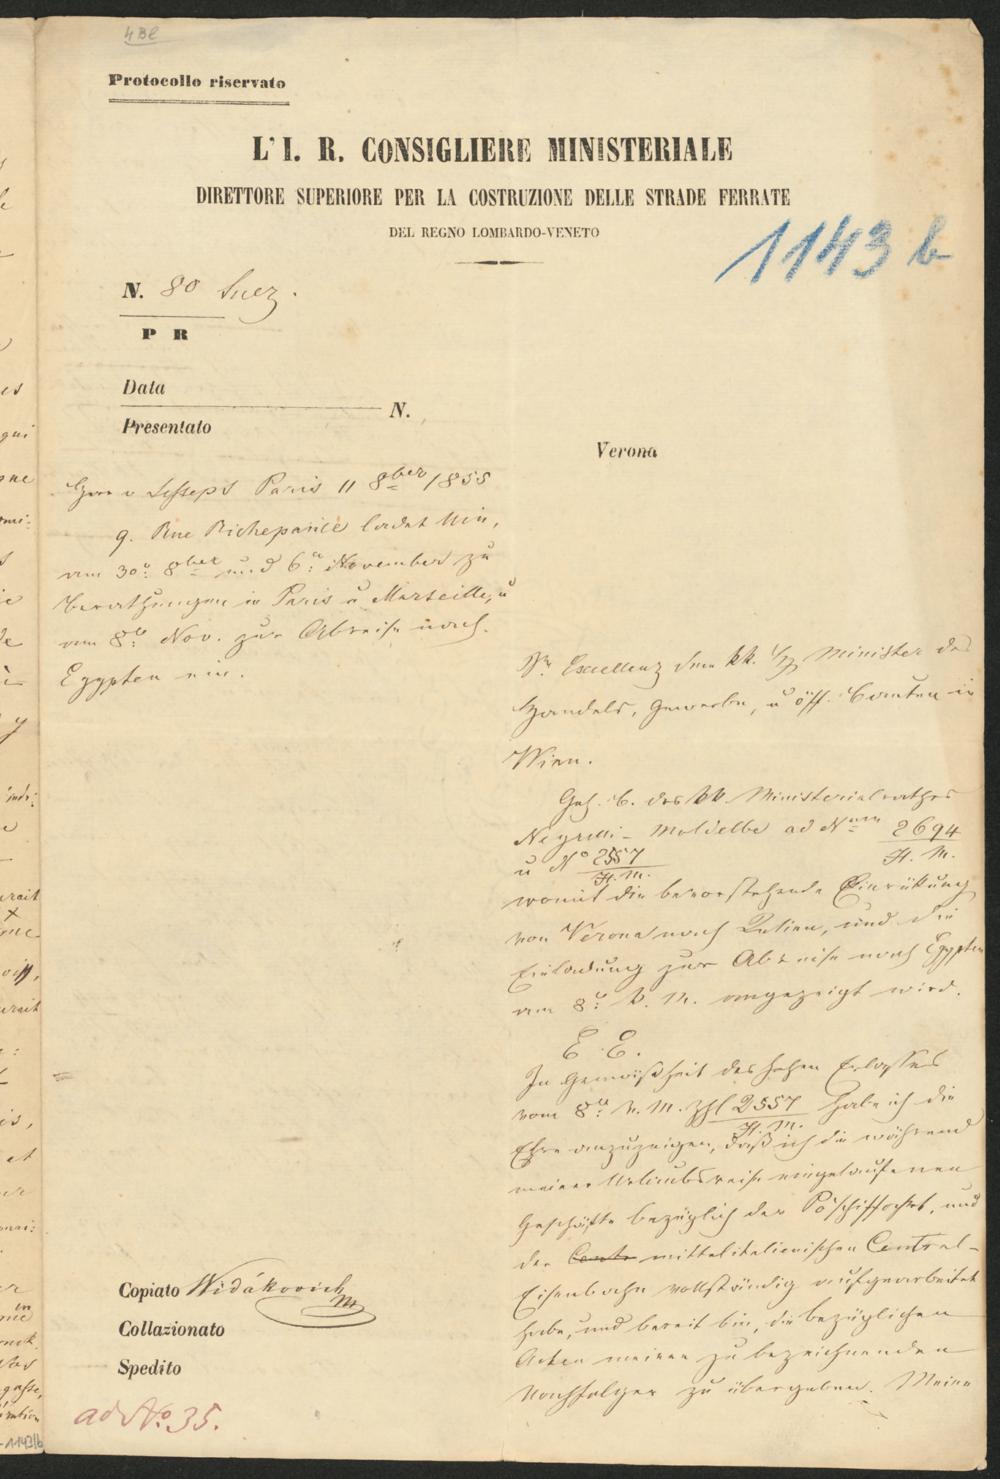 4 Bl
Protocollo riservato
L' I. R. CONSIGLIERE MINISTERIALE
DIRETTORE SUPERIORE PER LA COSTRUZIONE DELLE STRADE FERRATE
DEL REGNO LOMBARDO-VENETO
1143 b
N. 80 Suez.
P R
Data
N.
Presentato
Verona
Herr v Lesseps Paris 11 8ber 1855
9. Rue Richepanse ladet hin,
am 30n 8ber und 6n November zu
Berathungen in Paris u Marseille, u
am 8n Nov. zur Abreise nach
Egypten ein.
Sr. Excellenz dem kk. Minister des
Handels, Gewerbe, u öff. Bauten in
Wien.
Geh. B. des kk. Ministerialrathes
Negrelli-Moldelbe ad Num 2694
H. M.
u No 2557
H. M.
womit die bevorstehende Einrückung
von Verona nach Italien, und die
Einladung zur Abreise nach Egypten
am 8n k. M. angezeigt wird.
E. E.
In Gemäßheit des hohen Erlasses
vom 8n v. M. Zhl 2557 habe ich die
H. M.
Ehre anzuzeigen, daß ich die während
meiner Urlaubsreise eingelaufenen
Geschäfte bezüglich der Poschiffahrt, und
der Centr mittelitalienischen Central-
Eisenbahn vollständig aufgearbeitet
habe, und bereit bin, die bezüglichen
Acten meinem zu bezeichnenden
Nachfolger zu übergeben. Meine
Copiato Widákovich
Collazionato
Spedito
ad No. 35.